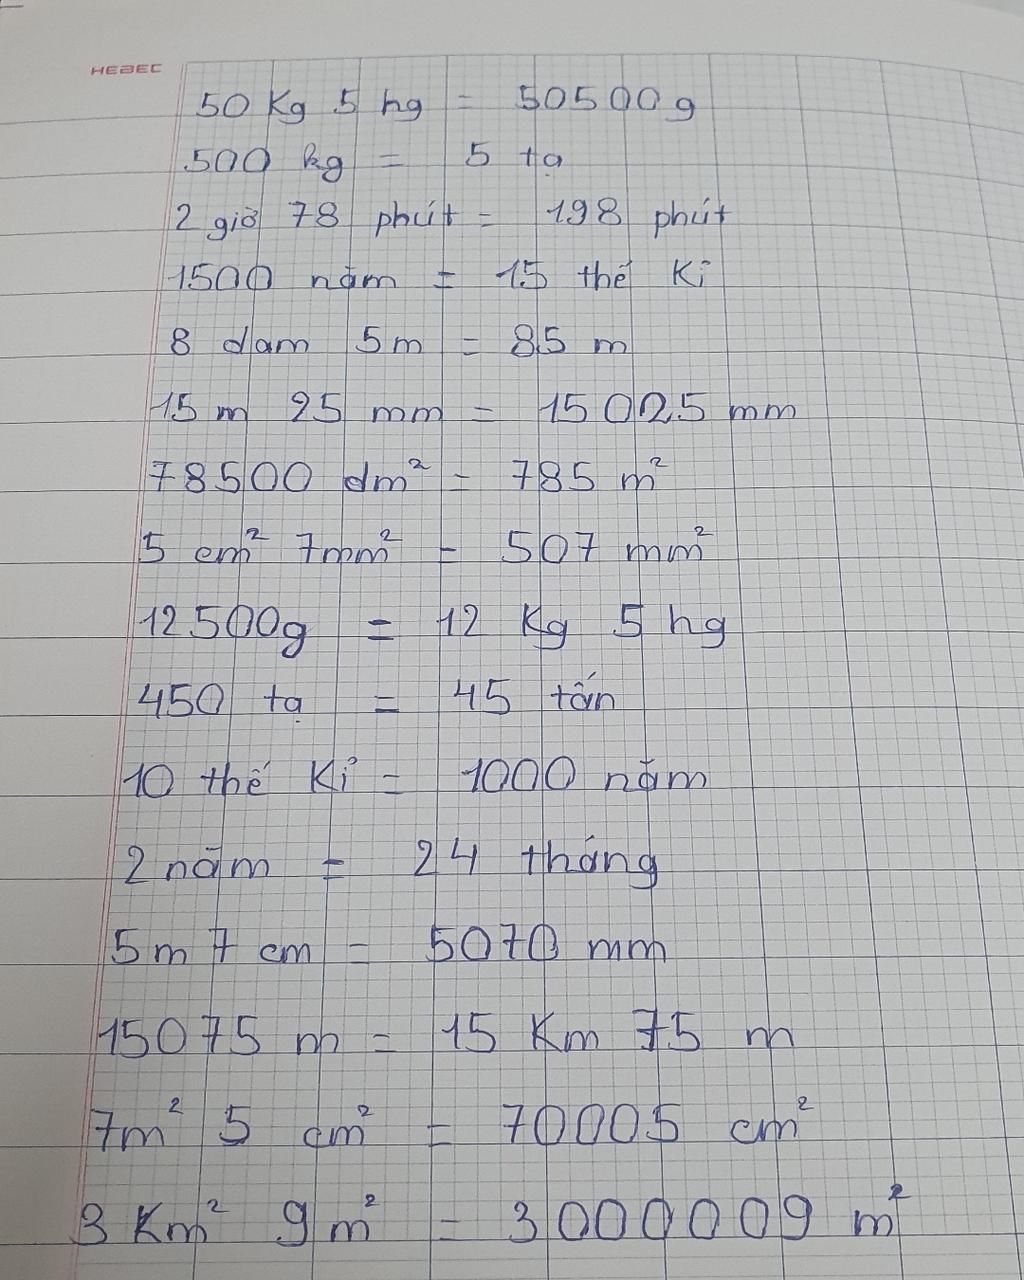 HEBEC
50 Kg 5 hg = 50500g
500 kg = 5 tạ
2 giờ 78 phút = 198 phút
1500 năm = 15 thế Kỉ
8 dam 5m = 85 m
15 m 25 mm = 15025 mm
78500 dm² = 785 m²
5 cm² 7mm² = 507 mm²
12500g = 12 Kg 5 hg
450 tạ = 45 tấn
10 thế Kỉ = 1000 năm
2 năm = 24 tháng
5m 7 cm = 5070 mm
15075 m = 15 Km 75 m
7m² 5 cm² = 70005 cm²
3 Km² 9 m² = 3000009 m²